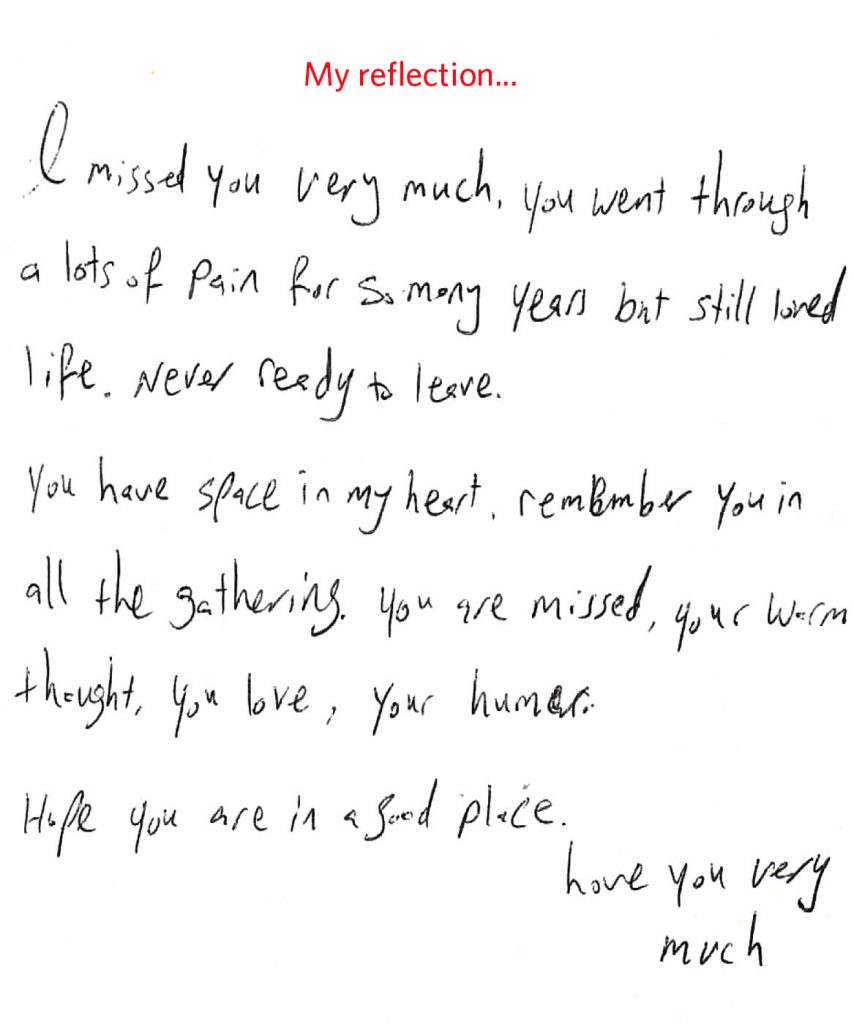 My reflection...
I missed you very much, you went through
a lots of pain for so many years but still loved
life. Never ready to leave.
You have space in my heart. remember you in
all the gathering. you are missed, your warm
thought, you love, your humar.
Hope you are in a good place.
hove you very
much